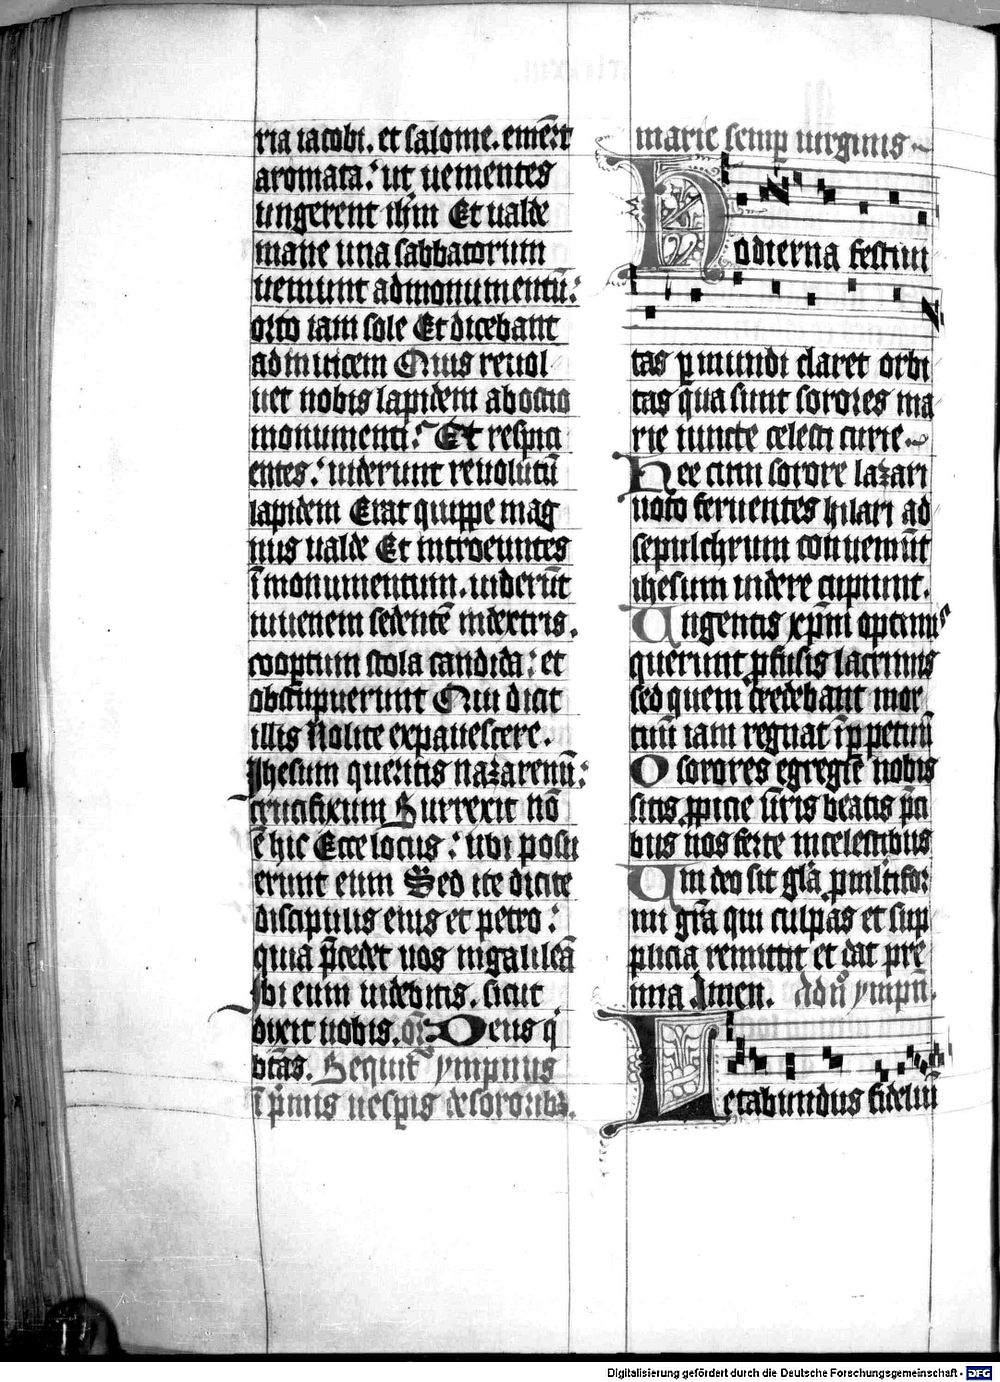 ria iacobi. et salome. emer̄t
aromata: ut uenientes
ungerent ihm̄ Et ualde
mane una sabbatorum
ueniunt ad monumentū:
orto iam sole Et dicebant
ad inuicem Quis reuol
uet nobis lapidem ab ostio
monumenti: Et respici
entes: uiderunt reuolutū
lapidem Erat quippe mag
nus ualde Et introeuntes
ī monumentum. uiderūt
iuuenem sedentē in dextris.
cooptum stola candida: et
obstupuerunt Qui dicit
illis Nolite expauescere.
Ihesum queritis nazarenū:
crucifixum Surrexit nō
ē hic Ecce locus: ubi posu
erunt eum Sed ite dicite
discipulis eius et petro:
quia p̄cedet uos in galileā
Ibi eum uidebitis. sicut
dixit uobis. or̄o Deus q̄
btās. Sequit᷑ ympnus
ī p̄mis uesp̄is de sororib᷒.
marie semp̄ uirginis
Hodierna festiui
tas p̄ mundi claret orbi
tas qua sunt sorores ma
rie iuncte celesti curie
Hee cum sorore lazari
uoto feruentes hilari ad
sepulchrum conueniūt
ihesum uidere cupiunt.
Ungentis xp̄m optimis
querunt p̄fusis lacrimis
sed quem credebant mor
tuū iam regnat īp̄petuū
O sorores egregie nobis
sitis p̄picie u̅r̅is beatis p̄ci
bus nos ferte in celestibus
Um deo sit gl̄a p̄ multifor
mi gr̄a qui culpas et sup
plicia remittit et dat pre
mia Amen. Ad nō ympn̄.
Letabundus fideliū
Digitalisierung gefördert durch die Deutsche Forschungsgemeinschaft - DFG